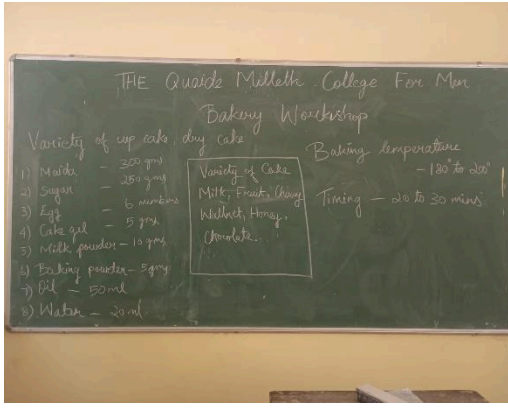 THE Quaide Milleth College For Men
Bakery Workshop
Variety of cup cake, dry cake
1) Maida - 300 gms
2) Sugar - 250 gms
3) Egg - 6 numbers
4) Cake gel - 5 gms
5) Milk powder - 10 gms
6) Baking powder - 5 gms
7) Oil - 50 ml
8) Water - 20 ml
Variety of Cake
Milk, Fruit, Cherry
Wallnet, Honey,
Chocolate...
Baking temperature
- 180° to 200°
Timing - 20 to 30 mins